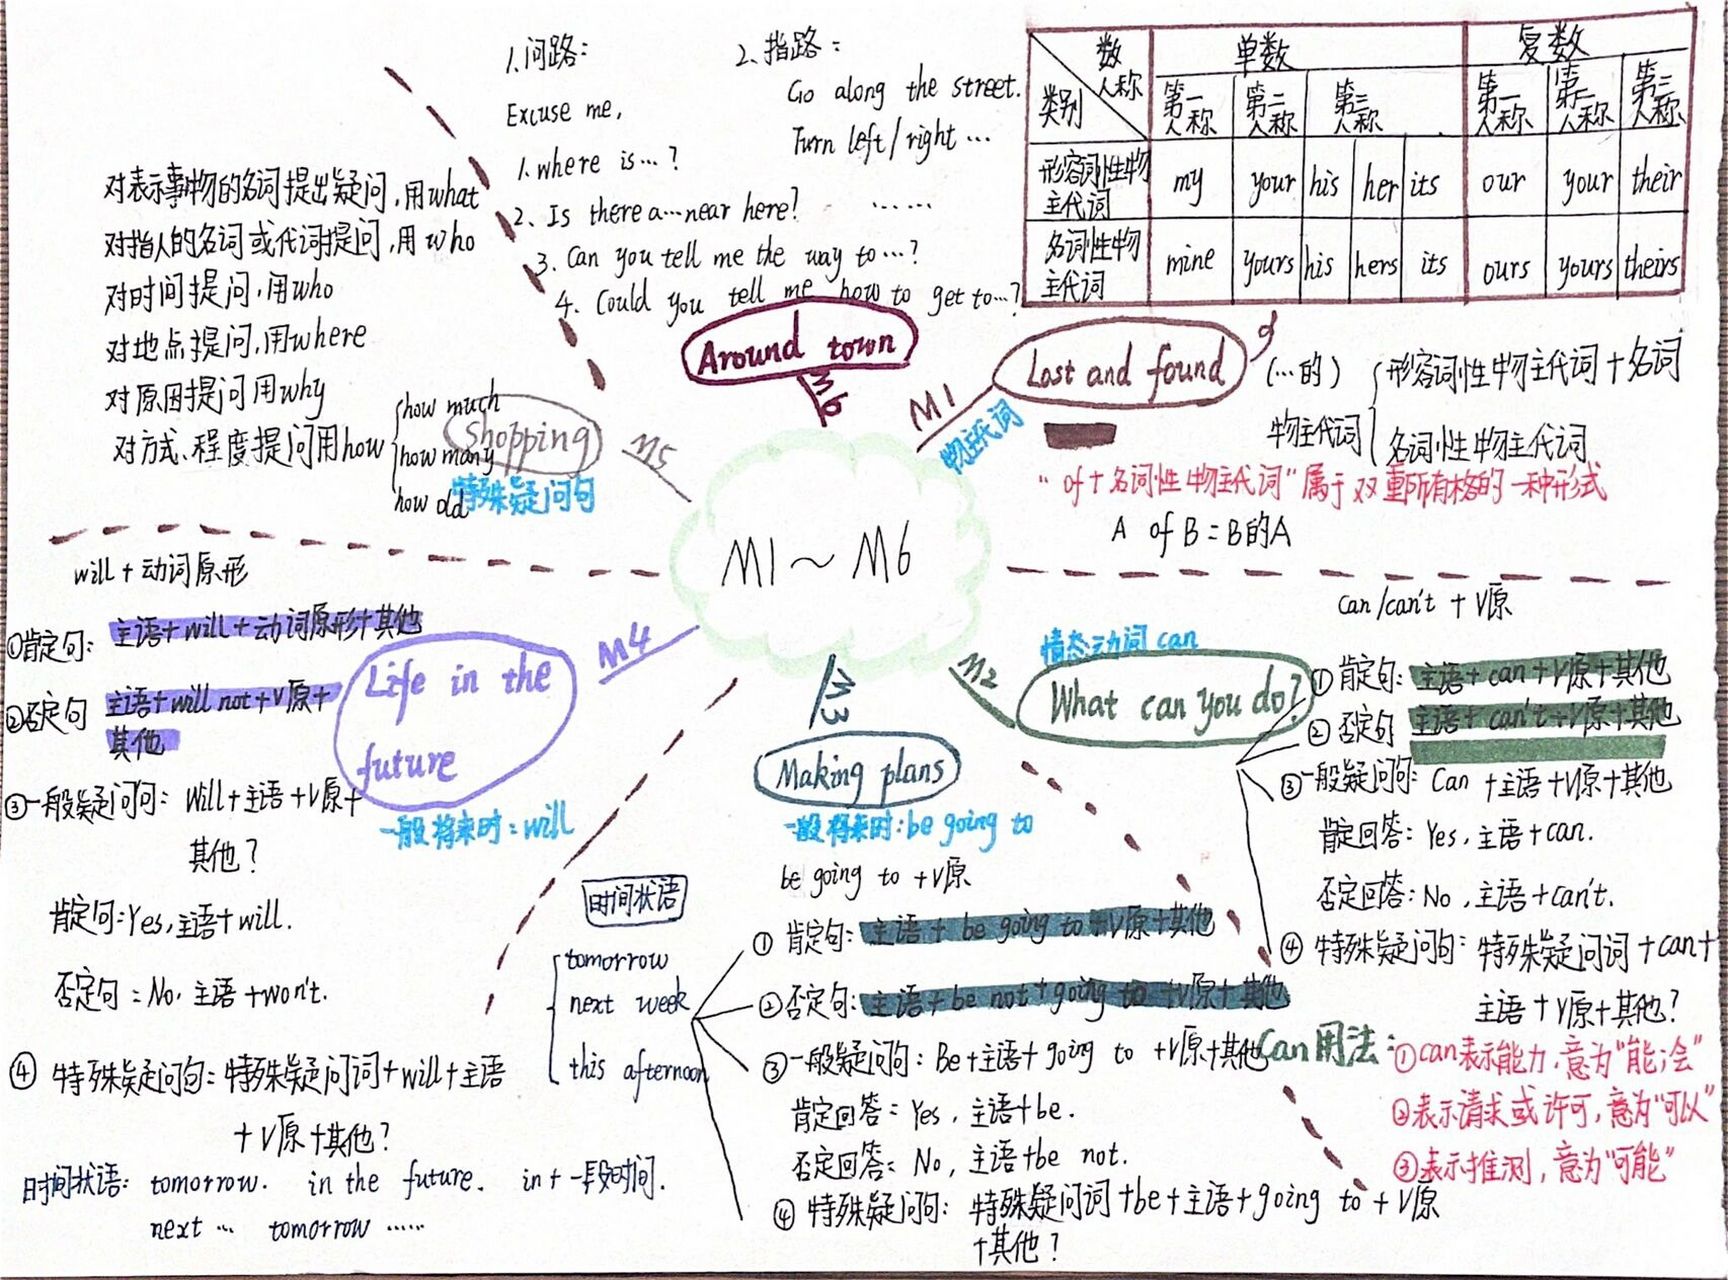 1.问路:
Excuse me,
1. where is…?
2. Is there a…near here?
3. Can you tell me the way to…?
4. Could you tell me how to get to…?
2、指路:
Go along the street.
Turn left/right …
……
数
人称
类别
单数
复数
第一人称 第二人称 第三人称 第一人称 第二人称 第三人称
形容词性物主代词 my your his her its our your their
名词性物主代词 mine yours his hers its ours yours theirs
对表示事物的名词提出疑问,用what
对指人的名词或代词提问,用who
对时间提问,用who
对地点提问,用where
对原因提问用why
对方式、程度提问用how
how much
how many
how old
Shopping
M5
特殊疑问句
Around town
M6
M1
Lost and found
物主代词
(…的)
物主代词
形容词性物主代词+名词
名词性物主代词
“of+名词性物主代词”属于双重所有格的一种形式
A of B=B的A
M1~M6
will+动词原形
①肯定句: 主语+will+动词原形+其他
②否定句 主语+will not+V原+
其他
③一般疑问问: Will+主语+V原+
其他?
肯定句:Yes,主语+will.
否定句:No,主语+won't.
④ 特殊疑问句:特殊疑问词+will+主语
+V原+其他?
时间状语: tomorrow. in the future. in+一段时间.
next … tomorrow ……
M4
Life in the
future
一般将来时:will
M3
Making plans
一般将来时:be going to
be going to +V原
时间状语
tomorrow
next week
this afternoon
① 肯定句: 主语+be going to+V原+其他
②否定句: 主语+be not+going to +V原+其他
③一般疑问句: Be+主语+going to +V原+其他
肯定回答: Yes, 主语+be.
否定回答: No, 主语+be not.
④ 特殊疑问句: 特殊疑问词+be+主语+going to +V原
+其他?
M2
情态动词can
What can you do?
can/can't +V原
①肯定句: 主语+can+V原+其他
②否定句 主语+can't+V原+其他
③一般疑问问: Can +主语+V原+其他
肯定回答: Yes,主语+can.
否定回答: No,主语+can't.
④ 特殊疑问句: 特殊疑问词+can+
主语+V原+其他?
Can用法:①can表示能力,意为“能;会”
②表示请求或许可,意为“可以”
③表示推测,意为“可能”